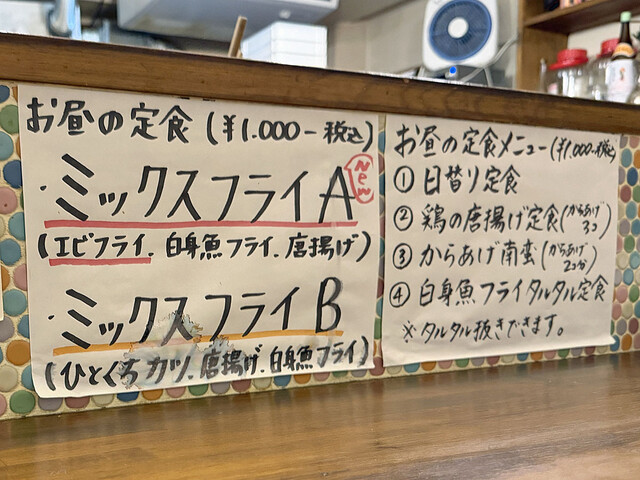 お昼の定食 (¥1.000-税込)
・ミックスフライA New
(エビフライ.白身魚フライ.唐揚げ)
・ミックスフライB
(ひとくちカツ.唐揚げ.白身魚フライ)
お昼の定食メニュー(¥1.000-税込)
① 日替り定食
② 鶏の唐揚げ定食(からあげ3コ)
③ からあげ南蛮(からあげ2コ分)
④ 白身魚フライタルタル定食
※タルタル抜きできます。